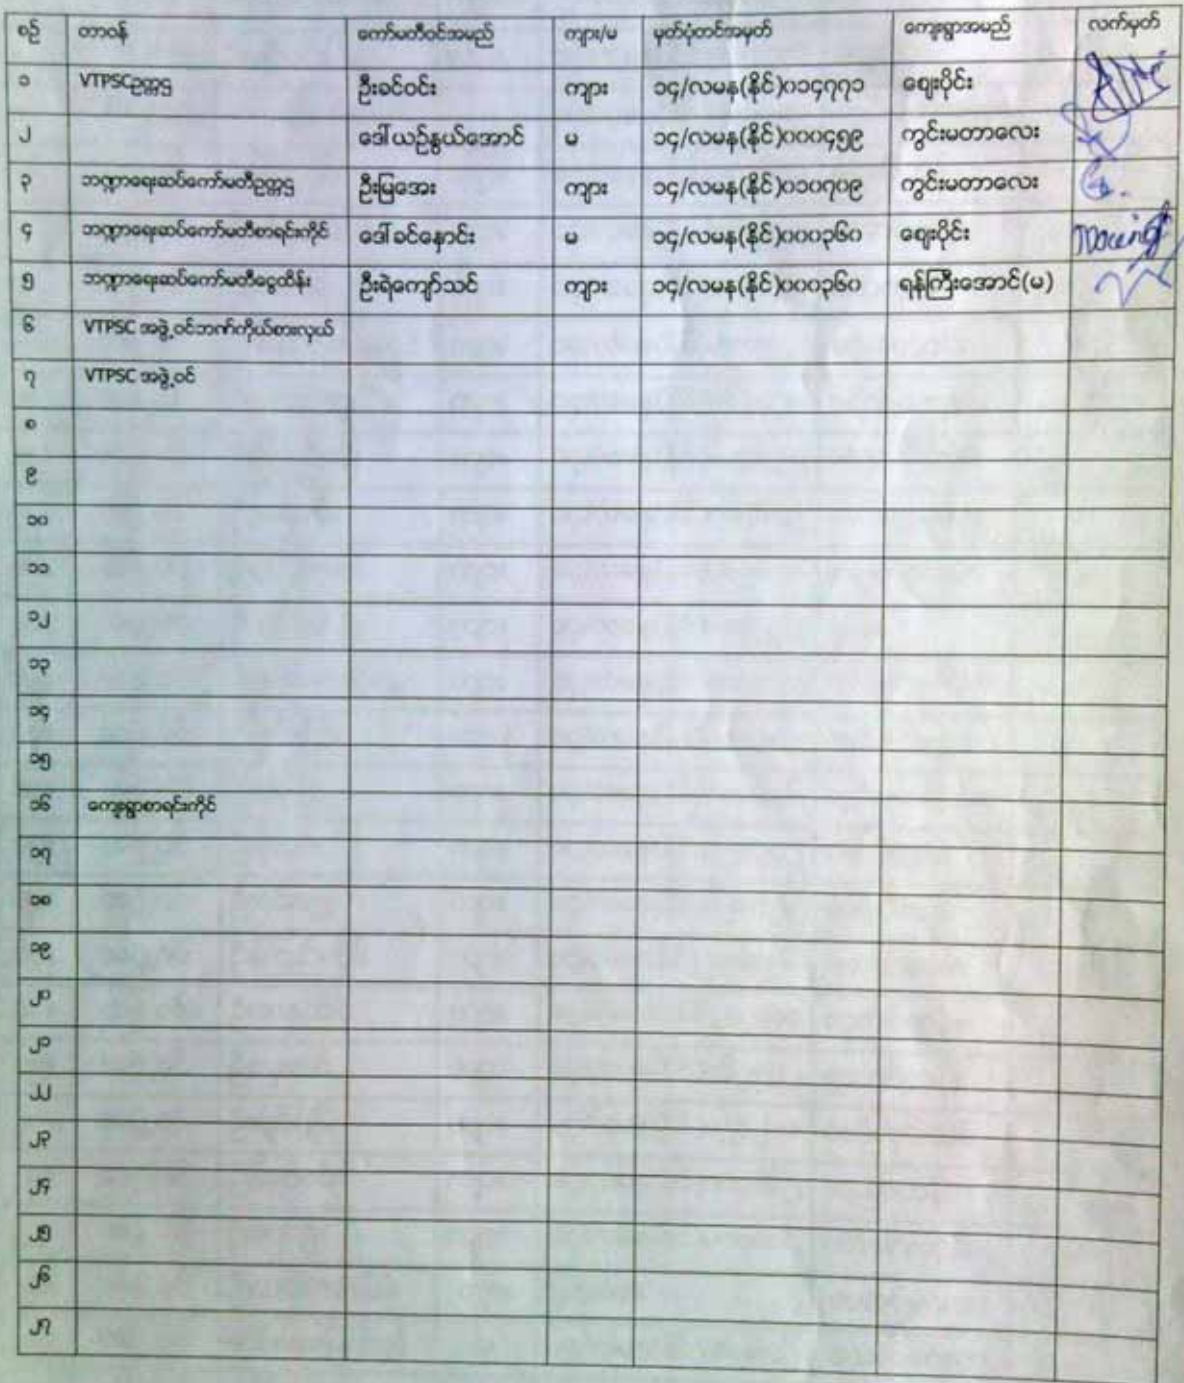 စဉ် တာဝန် ကော်မတီဝင်အမည် ကျား/မ မှတ်ပုံတင်အမှတ် ကျေးရွာအမည် လက်မှတ်
၁ VTPSCဥက္ကဌ ဦးခင်ဝင်း ကျား ၁၄/လမန(နိုင်)၀၁၄၇၇၁ ဈေးပိုင်း
၂ ဒေါ်ယဉ်နွယ်အောင် မ ၁၄/လမန(နိုင်)၀၀၀၄၅၉ ကွင်းမတာလေး
၃ ဘဏ္ဍာရေးဆပ်ကော်မတီဥက္ကဌ ဦးမြအေး ကျား ၁၄/လမန(နိုင်)၀၁၀၇၀၉ ကွင်းမတာလေး
၄ ဘဏ္ဍာရေးဆပ်ကော်မတီစာရင်းကိုင် ဒေါ်ခင်နှောင်း မ ၁၄/လမန(နိုင်)၀၀၀၃၆၀ ဈေးပိုင်း
၅ ဘဏ္ဍာရေးဆပ်ကော်မတီငွေထိန်း ဦးရဲကျော်သင် ကျား ၁၄/လမန(နိုင်)၀၀၀၃၆၀ ရန်ကြီးအောင်(မ)
၆ VTPSC အဖွဲ့ဝင်ဘဏ်ကိုယ်စားလှယ်
၇ VTPSC အဖွဲ့ဝင်
၈
၉
၁၀
၁၁
၁၂
၁၃
၁၄
၁၅
၁၆ ကျေးရွာစာရင်းကိုင်
၁၇
၁၈
၁၉
၂၀
၂၁
၂၂
၂၃
၂၄
၂၅
၂၆
၂၇